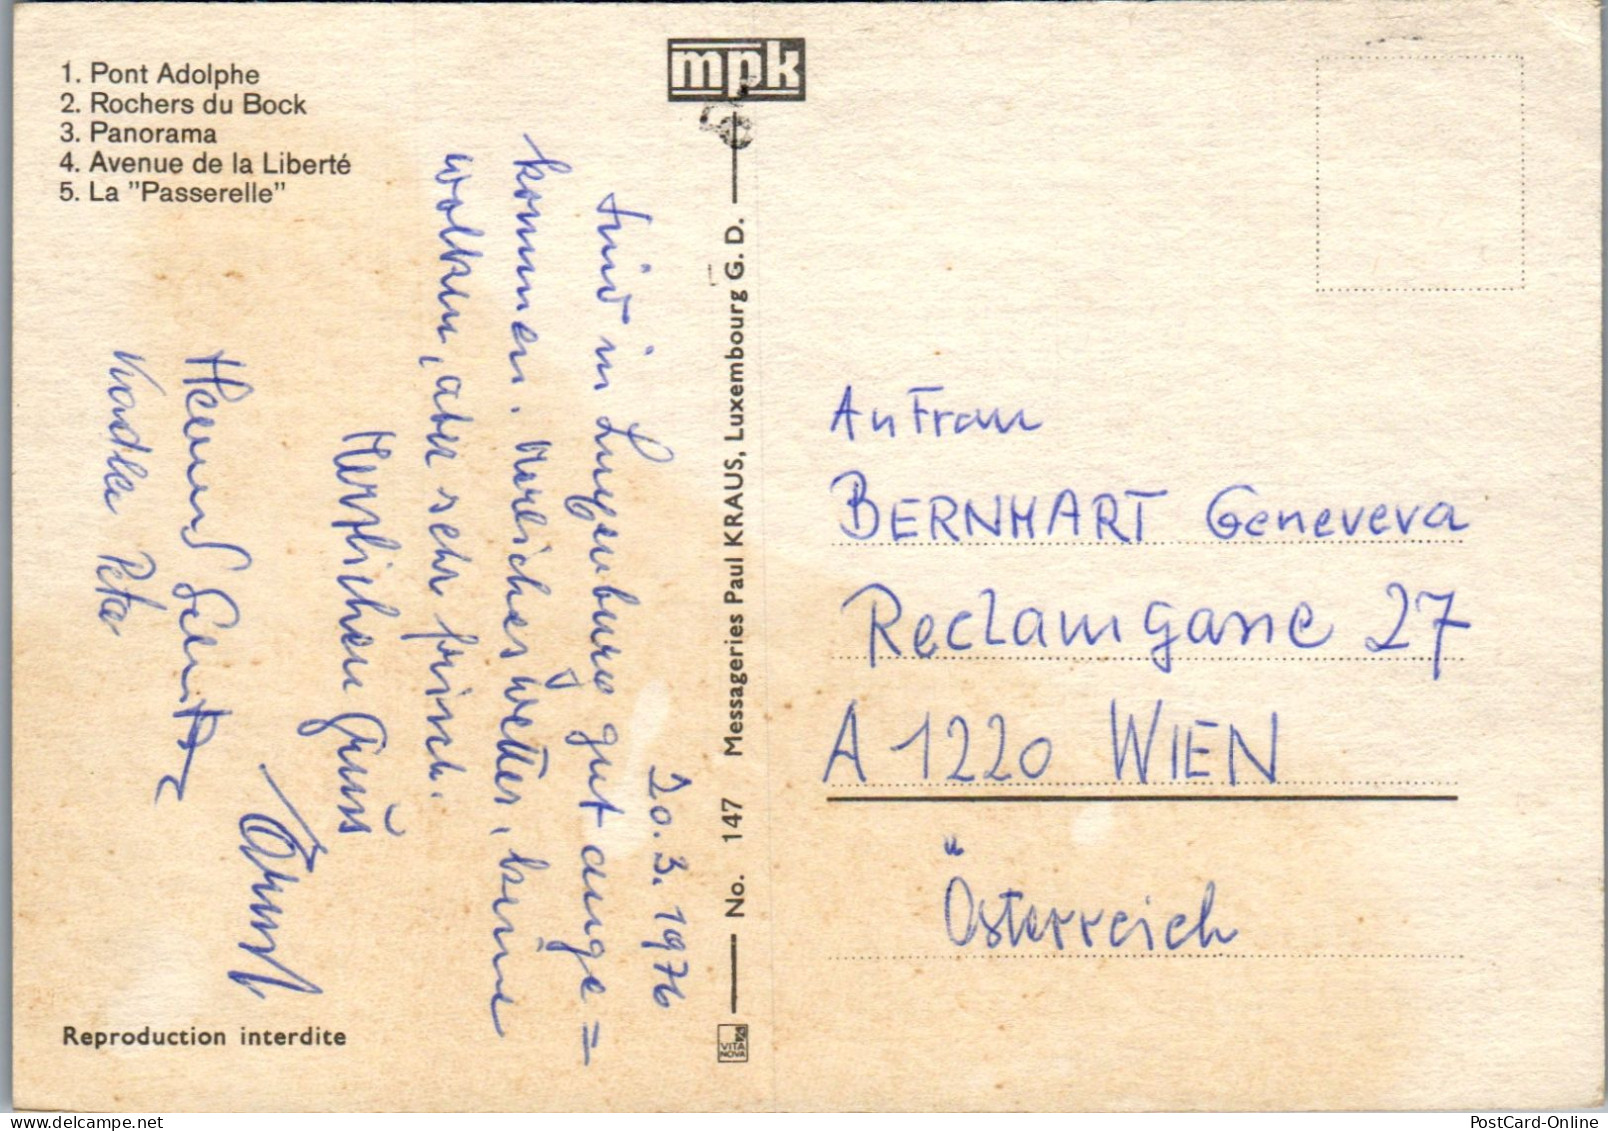 1. Pont Adolphe
2. Rochers du Bock
3. Panorama
4. Avenue de la Liberté
5. La "Passerelle"
mpk
20.3.1976
Sind in Luxenburg gut ange=
kommen. Herliches Wetter, keine
wolken, aber sehr frisch.
Herzlichen Gruss
Peter
Reproduction interdite
No. 147 Messageries Paul KRAUS, Luxembourg G. D.
VITA
NOVA
An Frau
BERNHART Geneveva
Reclamgasse 27
A 1220 WIEN
Österreich
PostCard-Online